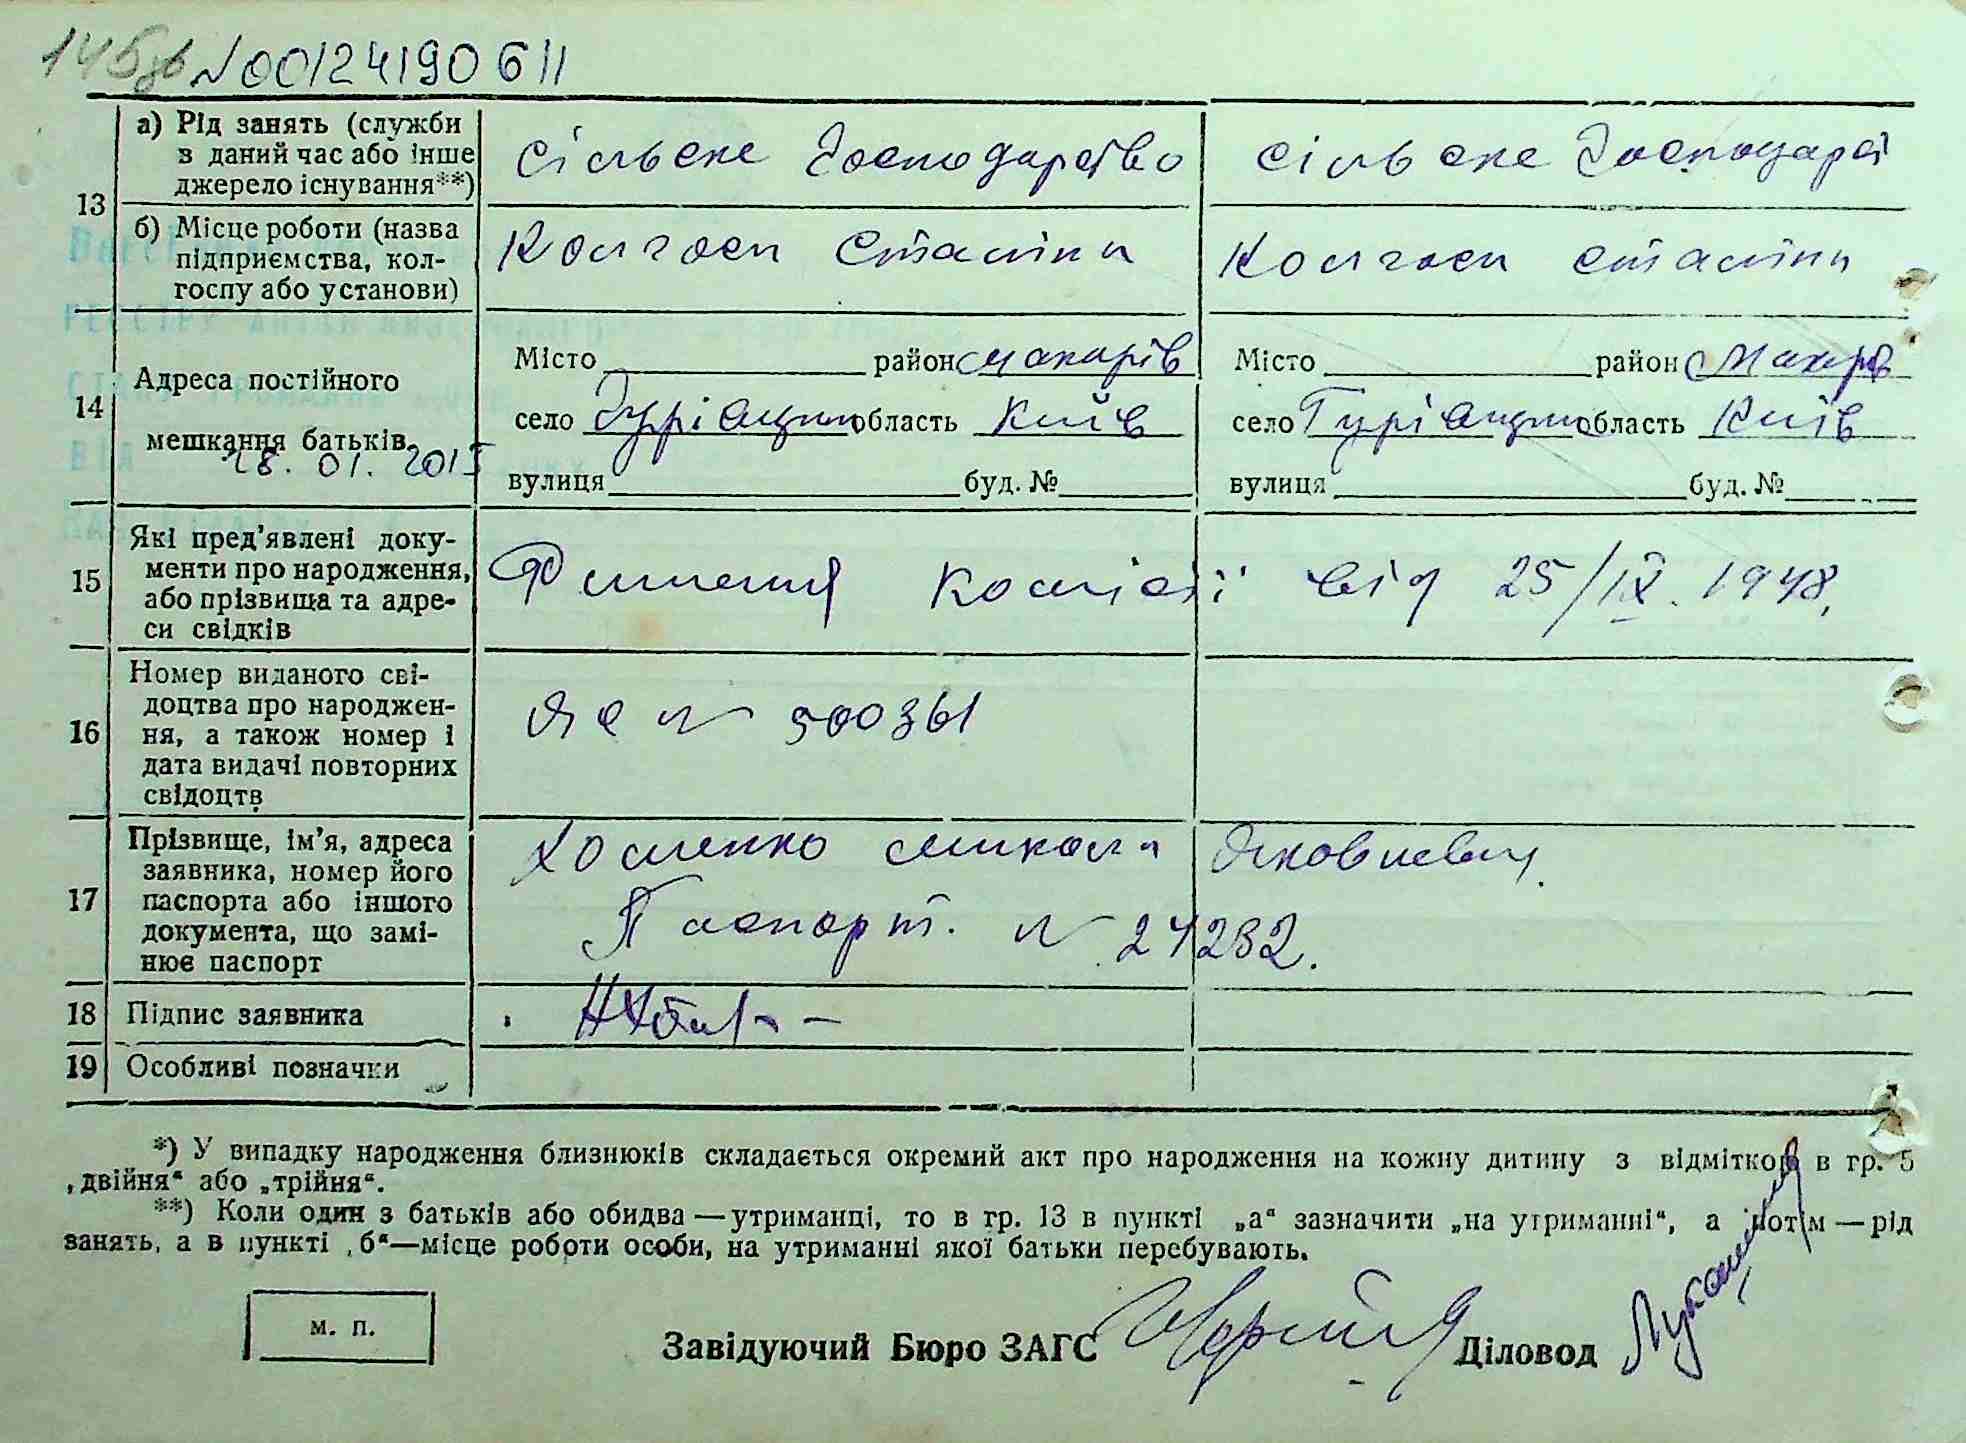 145зв №00124190611
13
а) Рід занять (служби в даний час або інше джерело існування**)
сільське господарство
сільське господар
б) Місце роботи (назва підприємства, колгоспу або установи)
Колгосп Сталіна
Колгосп Сталіна
14
Адреса постійного мешкання батьків
28.01.2015
Місто район Макарів
село область Київ
вулиця буд. №
Місто район Макарів
село область Київ
вулиця буд. №
15
Які пред’явлені документи про народження, або прізвища та адреси свідків
Рішення комісії від 25/IX. 1948.
16
Номер виданого свідоцтва про народження, а також номер і дата видачі повторних свідоцтв
ЯС № 500361
17
Прізвище, ім’я, адреса заявника, номер його паспорта або іншого документа, що замінює паспорт
Хоменко Микола Яковлевич.
Паспорт. № 24232.
18
Підпис заявника
19
Особливі позначки
*) У випадку народження близнюків складається окремий акт про народження на кожну дитину з відміткою в гр. 5
„двійня“ або „трійня“.
**) Коли один з батьків або обидва—утриманці, то в гр. 13 в пункті „а“ зазначити „на утриманні“, а потім—рід
занять, а в пункті „б“—місце роботи особи, на утриманні якої батьки перебувають.
м. п.
Завідуючий Бюро ЗАГС
Діловод